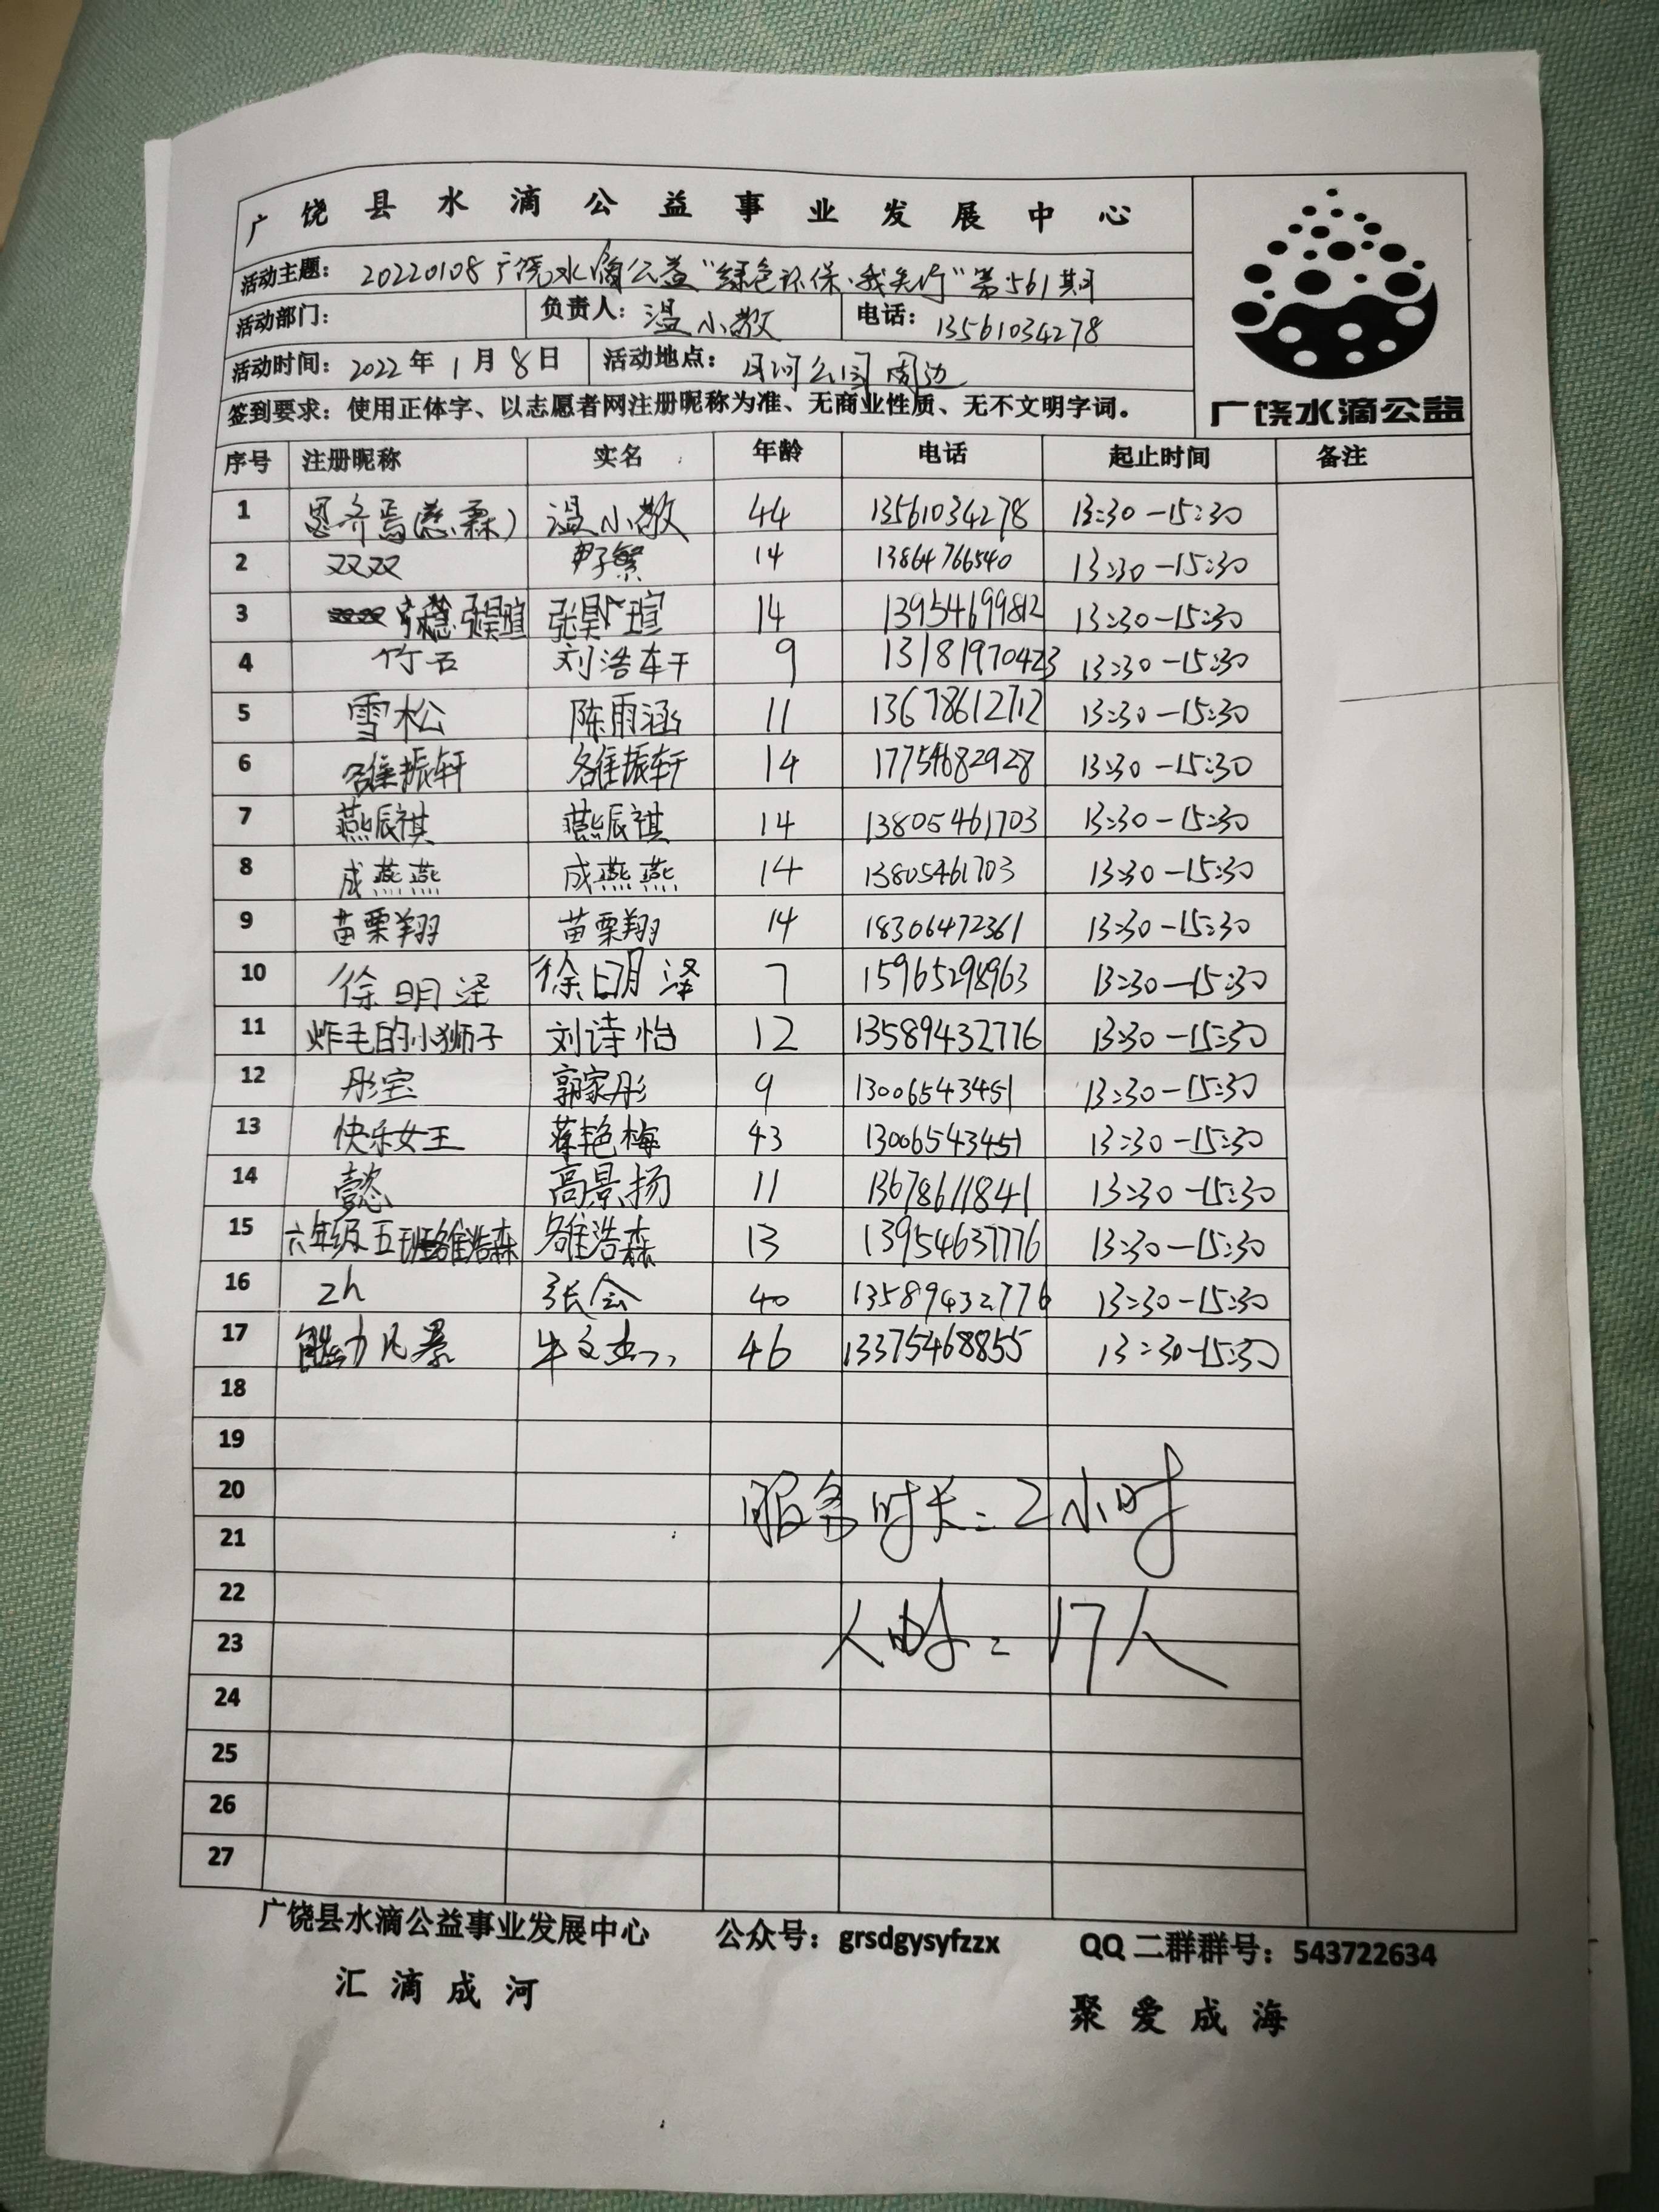 广饶县水滴公益事业发展中心
活动主题：20220108广饶水滴公益“绿色环保·我先行”第561期
活动部门： 负责人：温小敬 电话：13561034278
活动时间：2022年1月8日 活动地点：月河公园周边
签到要求：使用正体字、以志愿者网注册昵称为准、无商业性质、无不文明字词。
广饶水滴公益
序号 注册昵称 实名 年龄 电话 起止时间 备注
1 思齐焉(慈霖) 温小敬 44 13561034278 13:30-15:30
2 双双 14 13864766540 13:30-15:30
3 张昊瑄 张昊瑄 14 13954699812 13:30-15:30
4 竹石 刘浩轩 9 13181970423 13:30-15:30
5 雪松 陈雨涵 11 13678612712 13:30-15:30
6 雒振轩 雒振轩 14 17754682928 13:30-15:30
7 燕辰祺 燕辰祺 14 13805461703 13:30-15:30
8 成燕燕 成燕燕 14 13805461703 13:30-15:30
9 苗栗翔 苗栗翔 14 18306472361 13:30-15:30
10 徐明泽 徐明泽 7 15965298963 13:30-15:30
11 炸毛的小狮子 刘诗怡 12 13589432776 13:30-15:30
12 彤宝 郭家彤 9 13006543451 13:30-15:30
13 快乐女王 蒋艳梅 43 13006543451 13:30-15:30
14 懿 高景扬 11 13678611841 13:30-15:30
15 六年级五班雒浩森 雒浩森 13 13954637776 13:30-15:30
16 zh 张会 40 13589432776 13:30-15:30
17 能力风暴 牛文杰 46 13375468855 13:30-15:30
18
19
20 服务时长：2小时
21
22
23 人时：17人
24
25
26
27
广饶县水滴公益事业发展中心 公众号：grsdgysyfzzx QQ二群群号：543722634
汇滴成河 聚爱成海